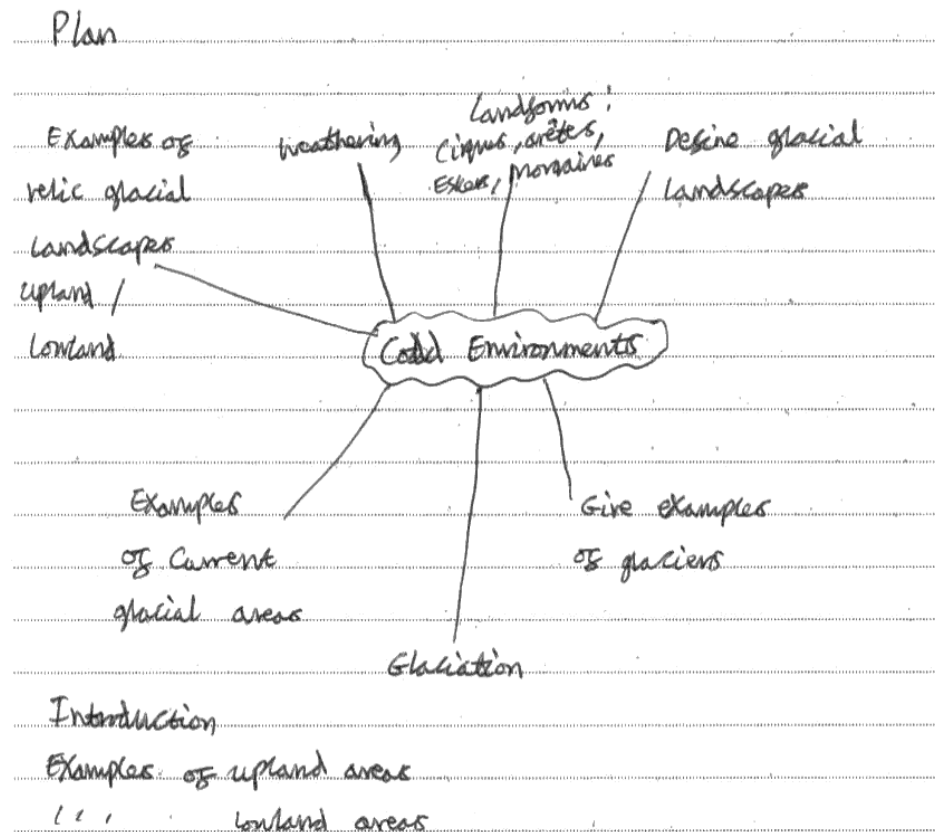 Plan
Examples of
relic glacial
landscapes
upland /
lowland
Weathering
Landforms:
Cirques, arêtes,
Eskers, Moraines
Define glacial
landscapes
Cold Environments
Examples
of Current
glacial areas
Glaciation
Give examples
of glaciers
Introduction
Examples of upland areas
" " lowland areas